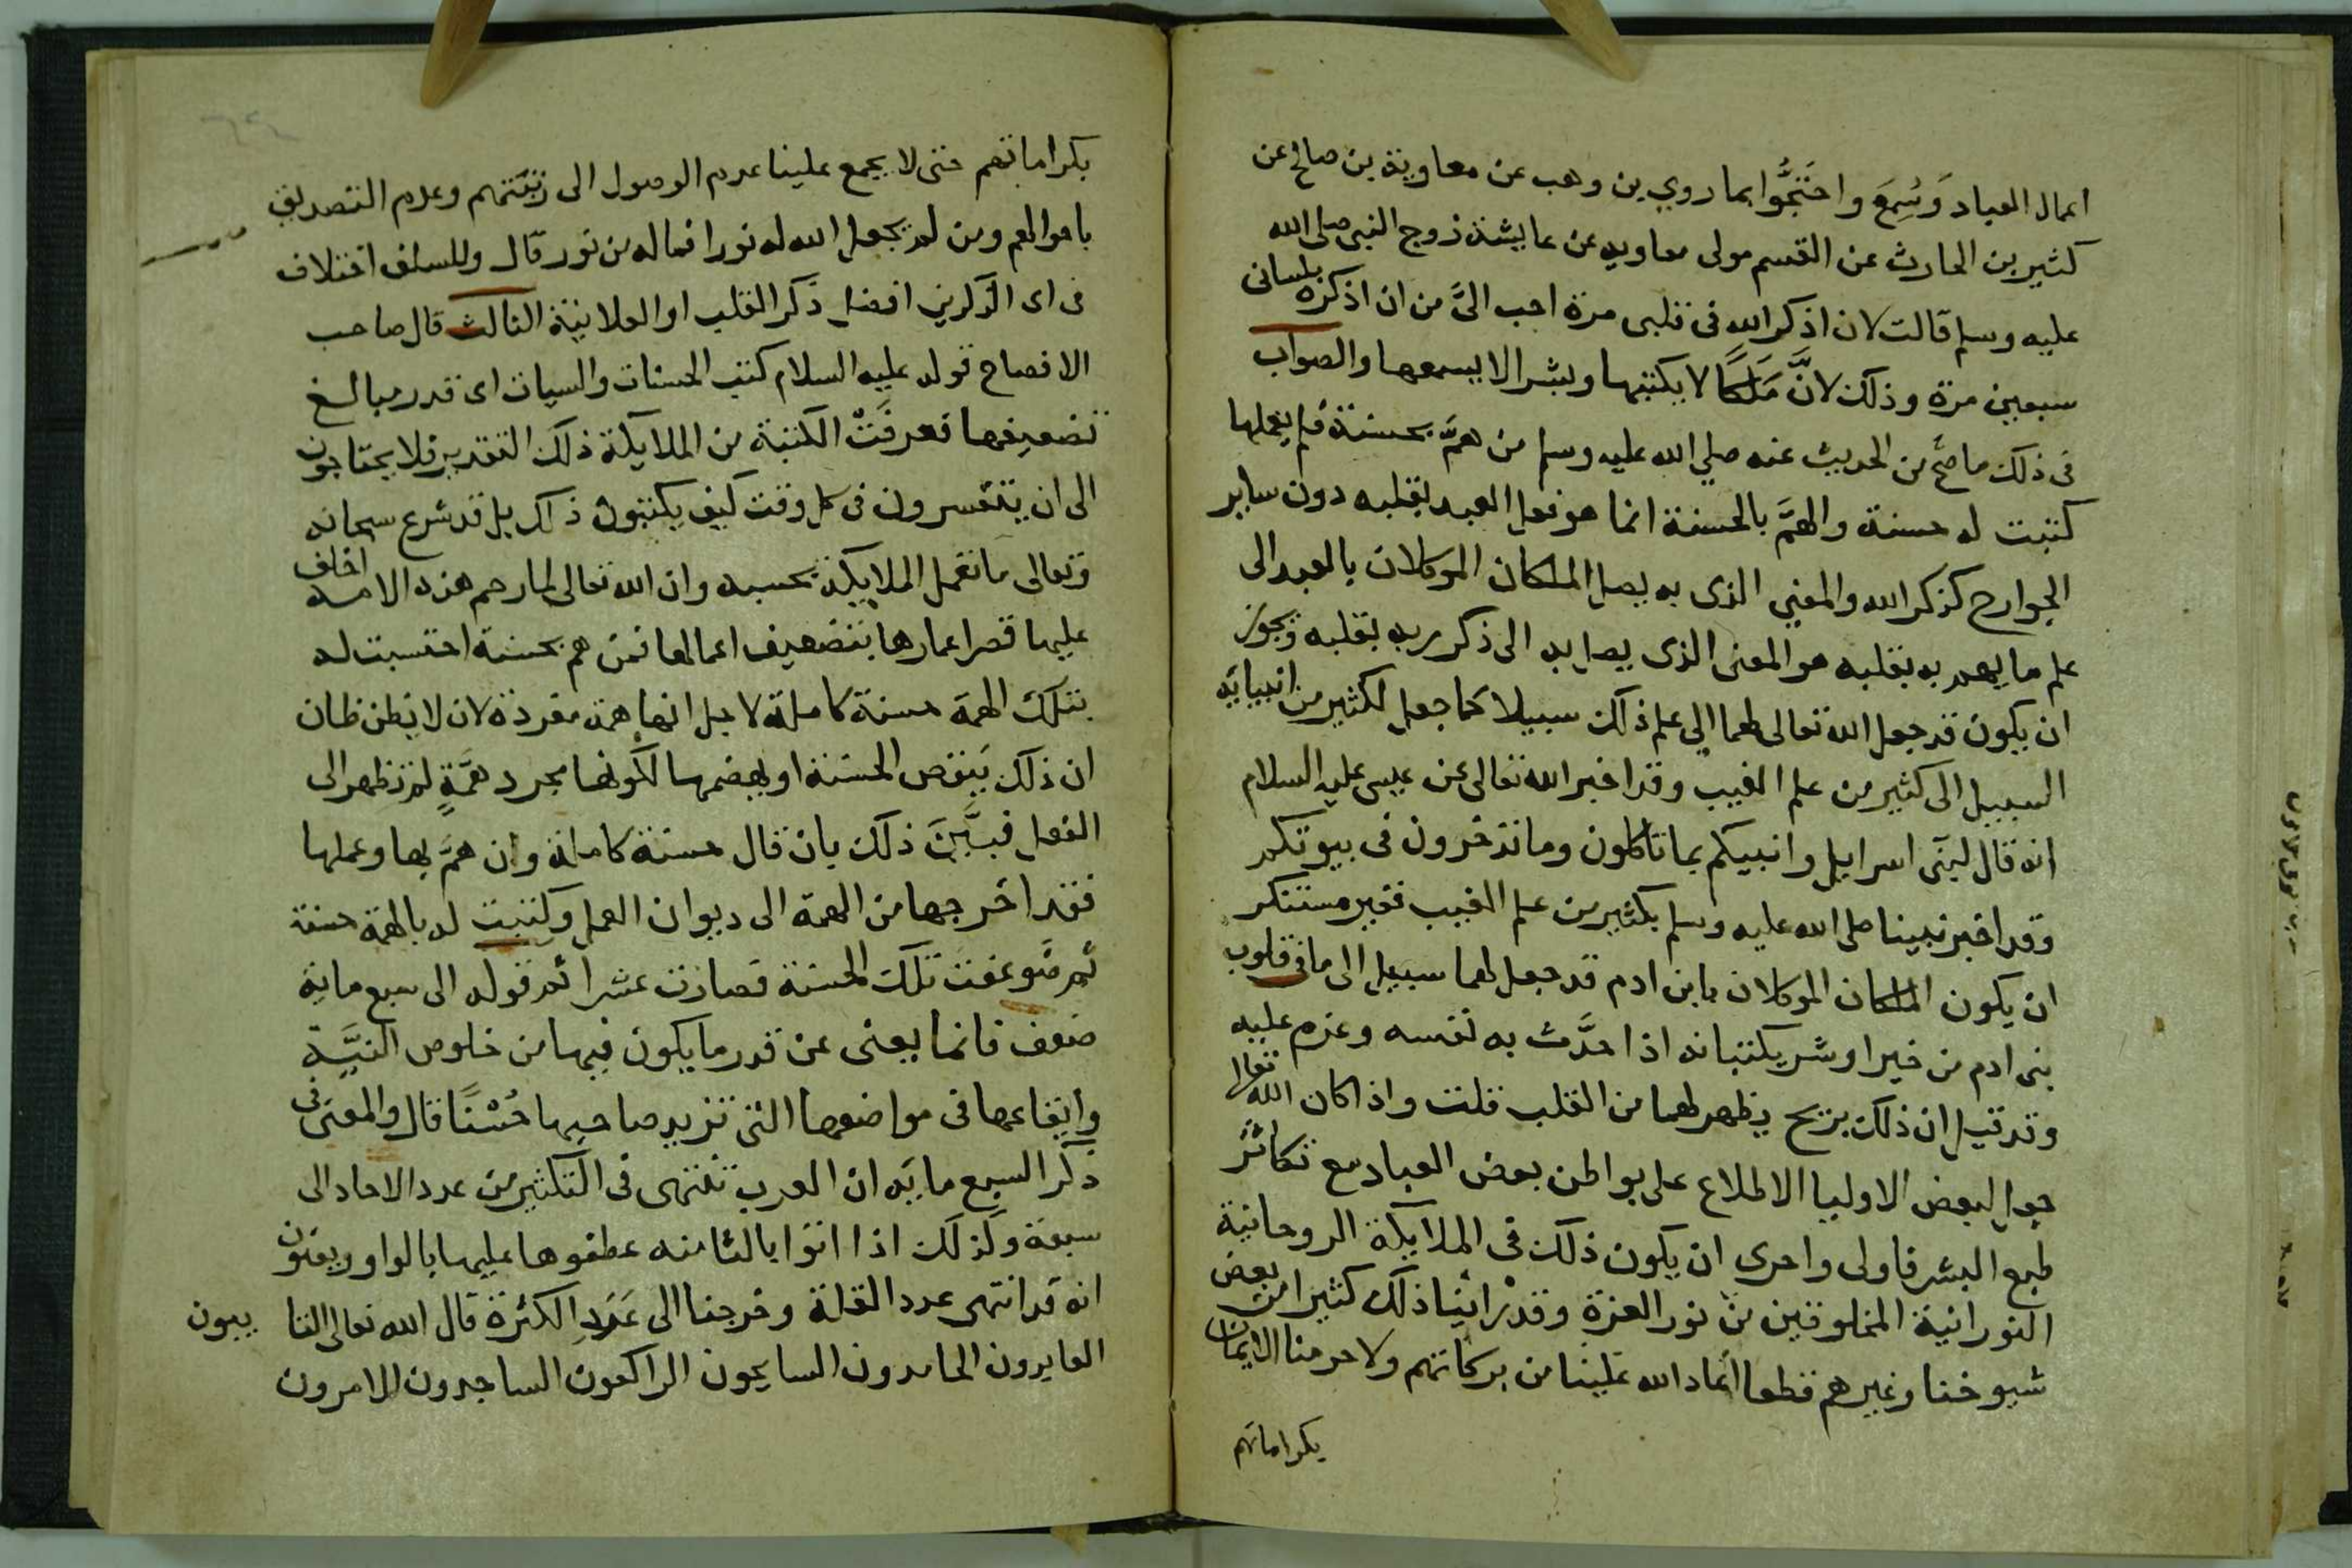 اعمال العباد وَسُمِعَ واحتَجُّوا بما روي بن وهب عن معاوية بن صالح عن
كثير بن الحارث عن القسم مولى معاويه عن عايشة زوج النبى صلى الله
عليه وسلم قالت لان اذكر الله فى قلبى مرة احب الىَّ من ان اذكره بلسانى
سبعين مرة وذلك لانَّ مَلَكًا لا يكتبها وبشرا لا يسمعها والصواب
فى ذلك ما صحَّ من الحديث عنه صلي الله عليه وسلم من همَّ بحسنة فلم يعملها
كتبت له حسنة والهمَّ بالحسنة انما هو فعل العبد بقلبه دون ساير
الجوارح كذكر الله والمعني الذى به يصل الملكان الموكلان بالعبد الى
علم ما يهم به بقلبه هو المعنى الذى يصل به الى ذكر ربه بقلبه ويجوز
ان يكون قد جعل الله تعالى لهما الى علم ذلك سبيلا كما جعل لكثير من انبيايه
السبيل الى كثير من علم الغيب وقد اخبر الله تعالى عن عيسى عليه السلام
انه قال لبنى اسرايل وانبيكم بما تاكلون وما تدخرون فى بيوتكم
وقد اخبر نبينا صلى الله عليه وسلم بكثير من علم الغيب فغير مستنكر
ان يكون الملكان الموكلان بابن ادم قد جعل لهما سبيل الى ما فى قلوب
بنى ادم من خير او شر يكتبانه اذا حدَّث به نفسه وعزم عليه
وقد قيل ان ذلك بريح يظهر لهما من القلب قلت واذا كان الله تعالى
جعل لبعض الاوليا الاطلاع على بواطن بعض العباد مع تكاثر
طبع البشر فاولى واحرى ان يكون ذلك فى الملايكة الروحانية
النورانية المخلوقين من نور العزة وقد راينا ذلك كثيرا من بعض
شيوخنا وغيرهم قطعا اعاد الله علينا من بركاتهم ولا حرمنا الايمان
بكراماتهم
بكراماتهم حتى لا يجمع علينا عدم الوصول الى رتبتهم وعدم التصديق
باحوالهم ومن لم يجعل الله له نورا فما له من نور قال وللسلف اختلاف
فى اى الذكرين افضل ذكر القلب او العلانية الثالث قال صاحب
الافصاح قوله عليه السلام كتب الحسنات والسيات اى قدر مبالغ
تضعيفها فعرفَتْ الكتبة من الملايكة ذلك التقدير فلا يحتاجون
الى ان يتفسرون فى كل وقت كيف يكتبون ذلك بل قد شرع سبحانه
وتعالى ما تعمل الملايكة بحسبه وان الله تعالى لما رحم هذه الامه اخلف
عليها قصر اعمارها بتضعيف اعمالها فمن هم بحسنة احتسبت له
بتلك الهمة حسنة كاملة لاجل انها همة مفردة لان لا يظن ظان
ان ذلك يَنقص الحسنة او يهضمها لكونها مجرد همَّةٍ لم تظهر الى
الفعل فبيَّنَ ذلك بان قال حسنة كاملة وان همَّ بها وعملها
فقد اخرجها من الهمة الى ديوان العمل وكتبت له بالهمة حسنة
ثم ضوعفت تلك الحسنة فصارت عشرا ثم قوله الى سبع ماية
ضعف فانما يعنى عن قدر ما يكون فيها من خلوص النيَّة
وايقاعها فى مواضعها التى تزيد صاحبها حُسْنًا قال والمعنى فى
ذكر السبع مايه ان العرب تنتهى فى التكثير من عدد الاحاد الى
سبعة وكذلك اذا اتوا بالثامنه عطفوها عليها بالواو ويعنون
انه قد انتهى عدد القلة وخرجنا الى عَدَدِ الكثرة قال الله تعالى التا يبون
العابدون الحامدون السايحون الراكعون الساجدون الامرون